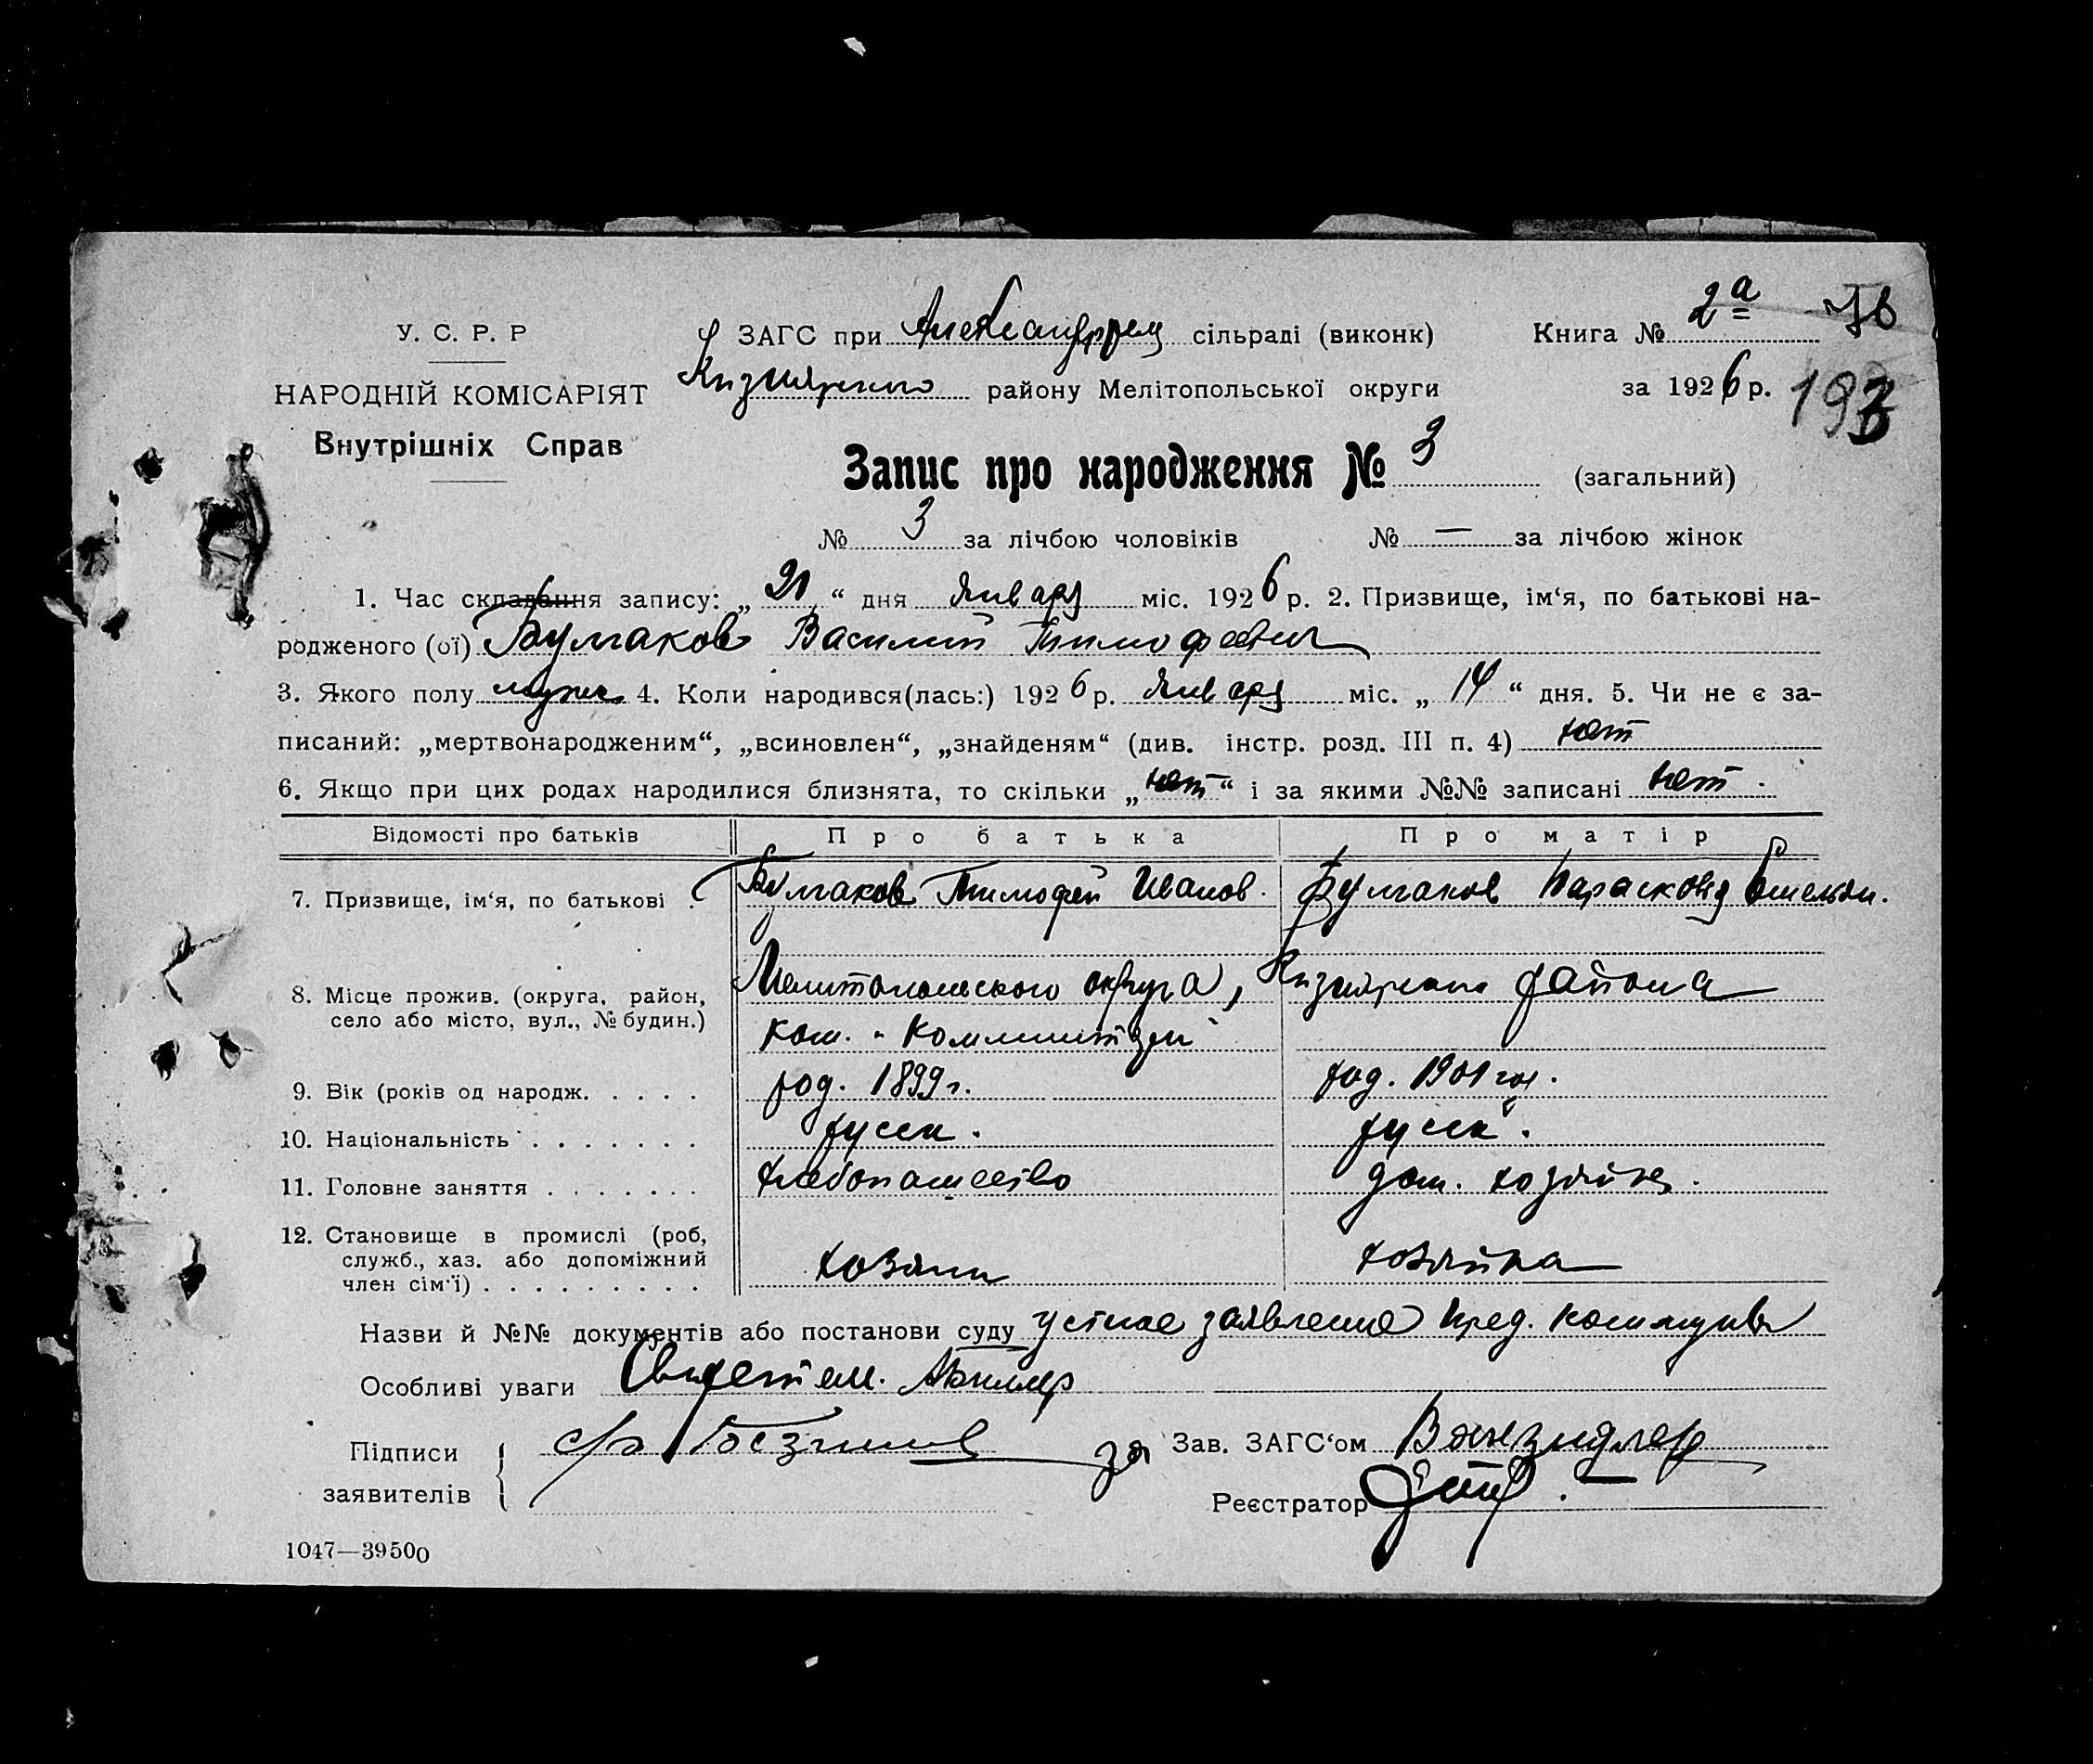 У. С. Р. Р
НАРОДНІЙ КОМІСАРІЯТ
Внутрішніх Справ
ЗАГС при сільраді (виконк)
Книга № 2а
району Мелітопольської округи
за 1926 р.
193
Запис про народження № 3 (загальний)
№ 3 за лічбою чоловіків № — за лічбою жінок
1. Час складання запису: „ “ дня января міс. 1926 р. 2. Призвище, ім‘я, по батькові на-
родженого (ої) Булгаков Василий Тимофеевич
3. Якого полу мужс. 4. Коли народився(лась:) 1926 р. января міс. „14“ дня. 5. Чи не є за-
писаний: „мертвонародженим“, „всиновлен“, „знайденям“ (див. інстр. розд. III п. 4) нет
6. Якщо при цих родах народилися близнята, то скільки „нет“ і за якими №№ записані нет.
Відомості про батьків
Про батька
Про матір
7. Призвище, ім‘я, по батькові .
Булгаков Тимофей Иванов.
Булгаков Парасковя Емельян.
8. Місце прожив. (округа, район,
село або місто, вул., № будин.)
Мелитопольского округа, района
ком.
9. Вік (років од народж. . . . .
род. 1899 г.
род. 1901 год.
10. Національність . . . . . . .
русск.
русск.
11. Головне заняття . . . . . . .
хлебопашество
дом. хозяйка.
12. Становище в промислі (роб,
служб., хаз. або допоміжний
член сім‘ї) . . . . . . . . .
хозяин
хозяйка
Назви й №№ документів або постанови суду устное заявление пред. коммуны
Особливі уваги
Підписи
заявителів
за Зав. ЗАГС‘ом
Реєстратор
1047—39500